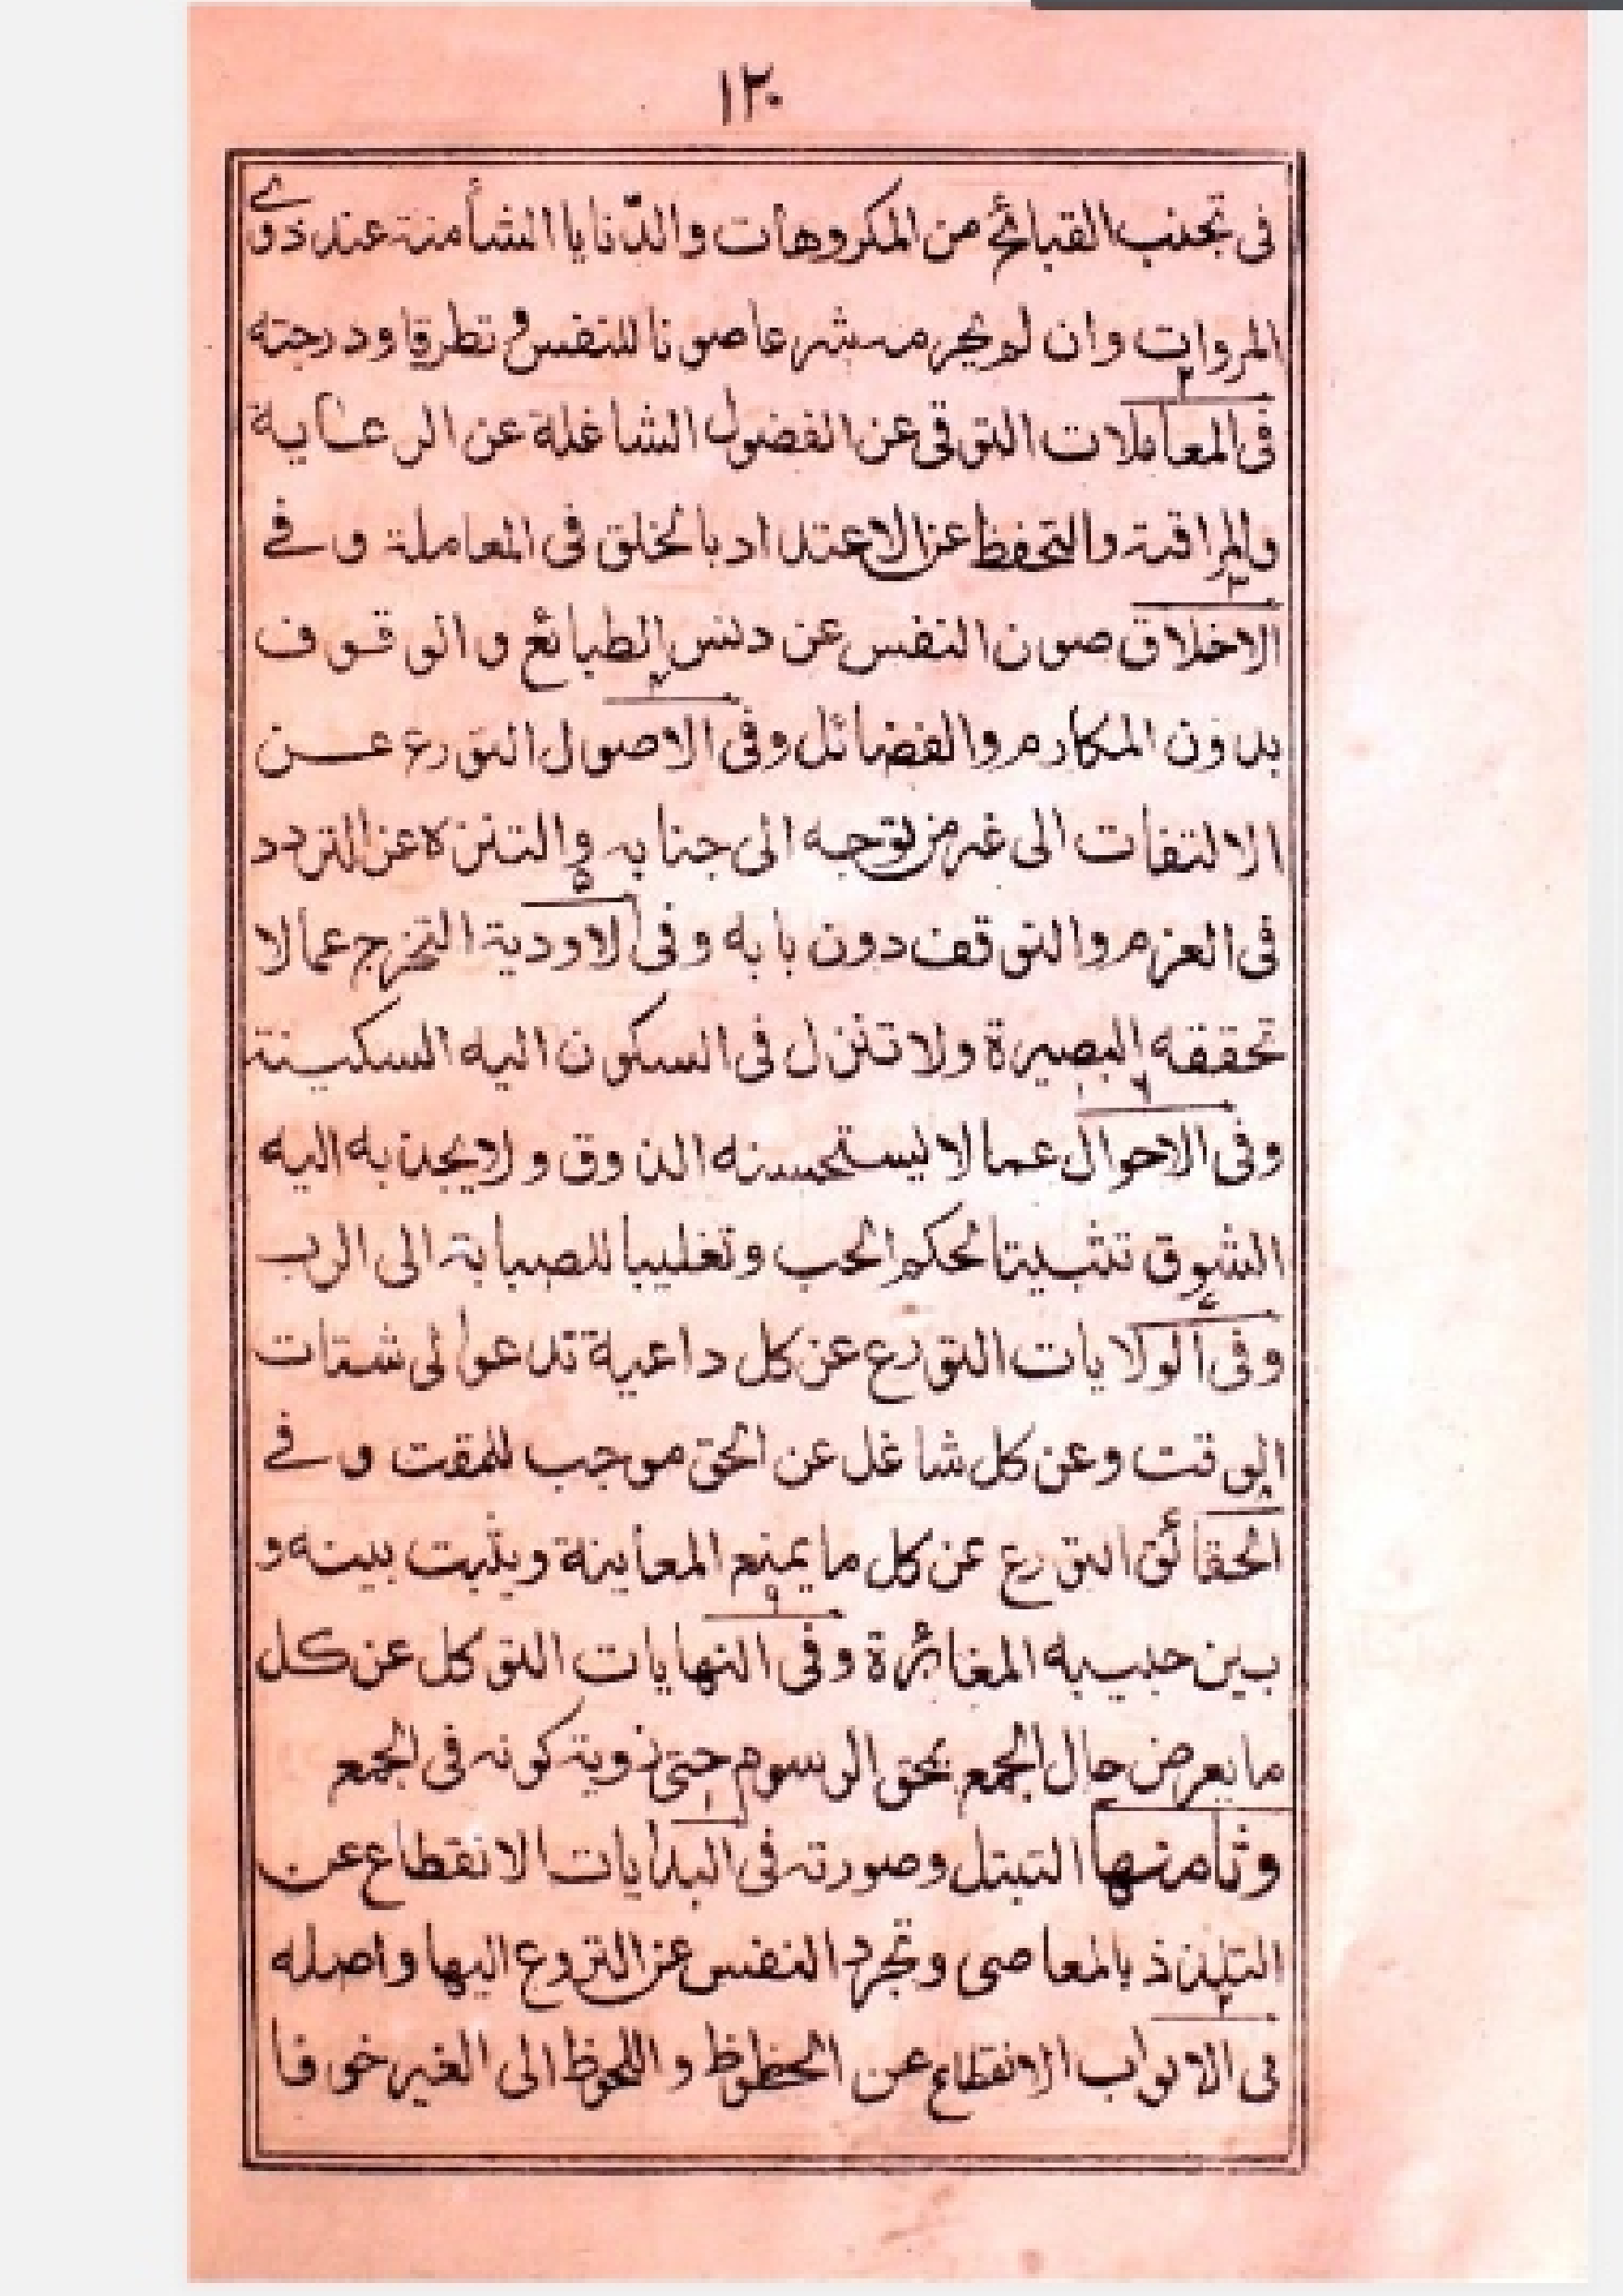 ١٢٠
فى تجنب القبائح من المكروهات والدّنايا الشأمنة عند ذوى
المروات وان لم يجر منه شرعا صونا للنفس و تطرقا ودرجته
٢
فى المعاملات التوقى عن الفضول الشاغلة عن الرعاية
والمراقبة والتحفظ عن الاعتداد بالخلق فى المعاملة وفے
٣
الاخلاق صون النفس عن دنس الطبائع والوقوف
٤
بدون المكارم والفضائل وفى الاصول التورع عن
الالتفات الى غير من توجه الى جنابه والتنزه عن التردد
٥
فى العزم والتوقف دون بابه وفى الاودية التحرج عما لا
تحققه البصيرة ولا تنزل فى السكون اليه السكينة
٦
وفى الاحوال عما لا يستحسنه الذوق ولا يجذبه اليه
الشوق تثبيتا لحكم الحب وتغليبا للصبابة الى الرب
٧
وفى الولايات التورع عن كل داعية تدعوالى شتات
الوقت وعن كل شاغل عن الحق موجب للمقت وفے
٨
الحقائق التورع عن كل ما يمنع المعاينة ويثبت بينه و
٩
بين حبيبه المغائرة وفى النهايات التوكل عن كل
ما يعرض حال الجمع بحق الرسوم حتى زوية كونه فى الجمع
١
وثامنها التبتل وصورته فى البدايات الانقطاع عن
التلذذ بالمعاصى وتجرد النفس عن النزوع اليها واصله
٢
فى الابواب الانقطاع عن الحظوظ واللحوظ الى الغير خوفا